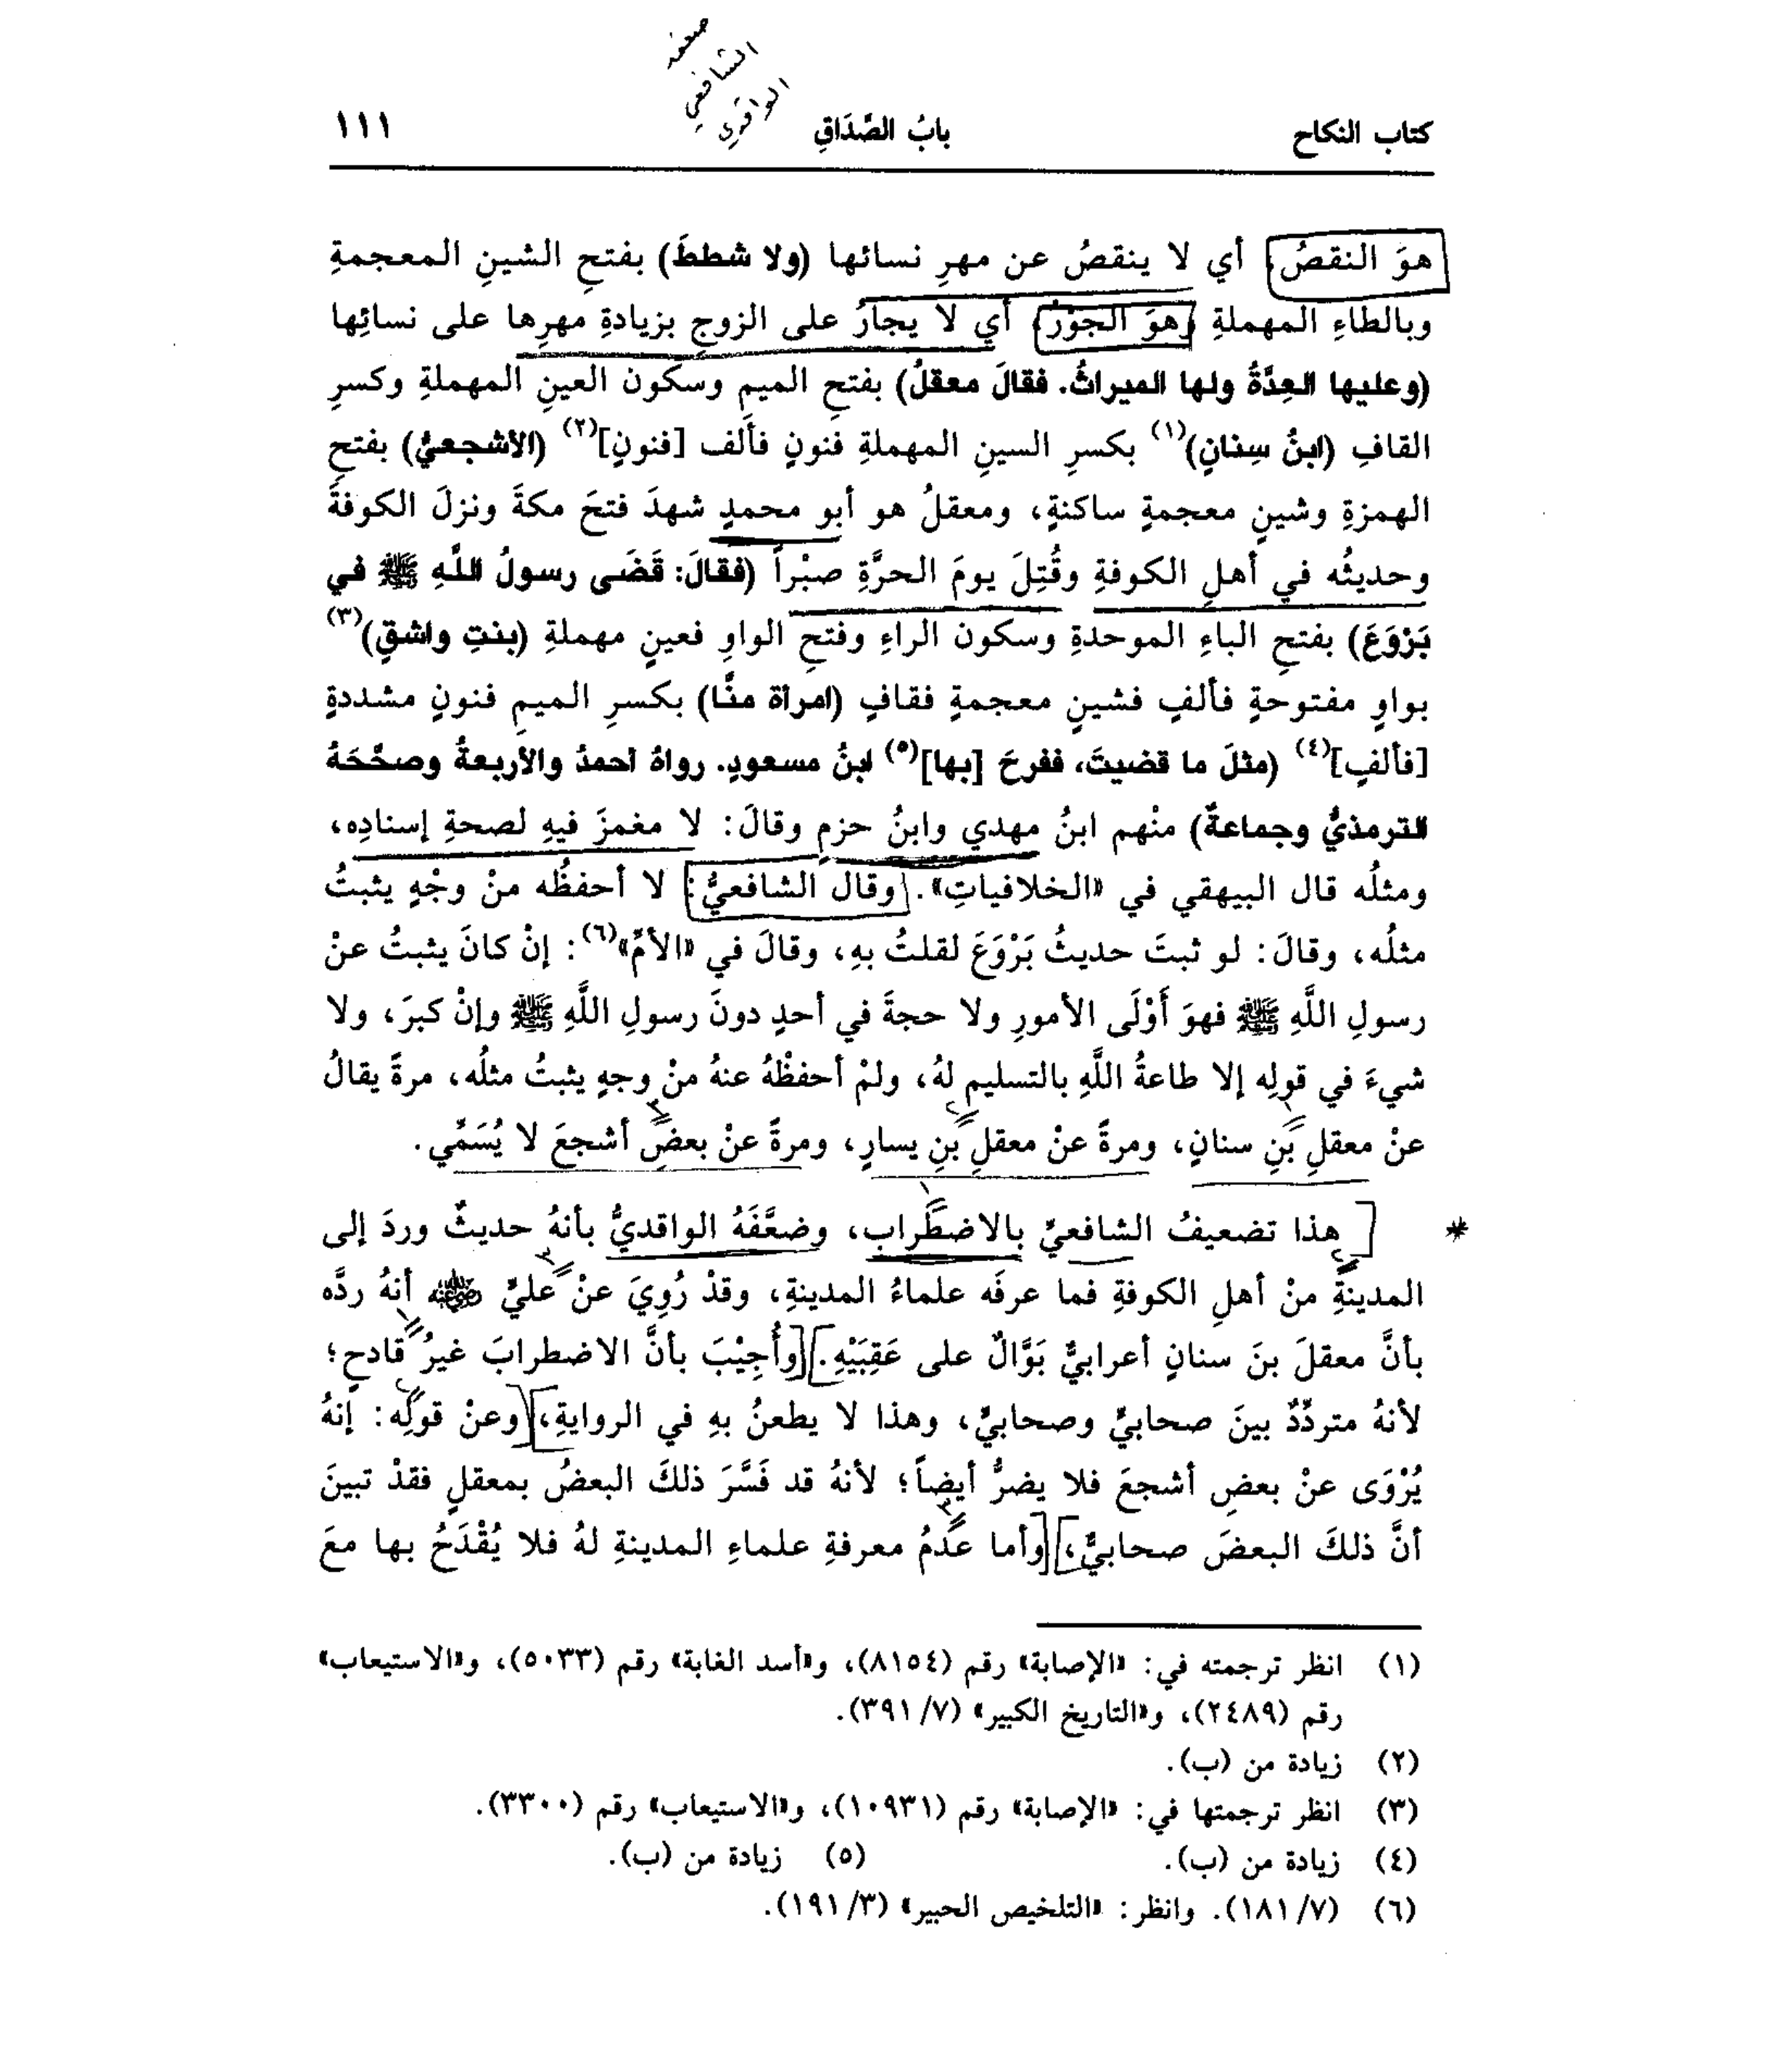 ضعفه
الشافعي
الواقدي
كتاب النكاح بابُ الصَّدَاقِ ١١١
هوَ النقصُ أي لا ينقصُ عن مهرِ نسائها (ولا شططَ) بفتحِ الشينِ المعجمةِ
وبالطاءِ المهملةِ وهوَ الجوْرُ، أي لا يجارُ على الزوجِ بزيادةِ مهرِها على نسائِها
(وعليها العِدَّةُ ولها الميراثُ. فقالَ معقلُ) بفتحِ الميمِ وسكون العينِ المهملةِ وكسرِ
القافِ (ابنُ سِنانٍ)(١) بكسرِ السينِ المهملةِ فنونٍ فألف [فنونٍ](٢) (الأشجعيُّ) بفتحِ
الهمزةِ وشينٍ معجمةٍ ساكنةٍ، ومعقلُ هو أبو محمدٍ شهدَ فتحَ مكةَ ونزلَ الكوفةَ
وحديثُه في أهلِ الكوفةِ وقُتِلَ يومَ الحرَّةِ صبْراً (فقالَ: قَضَى رسولُ اللَّهِ ﷺ في
بَرْوَعَ) بفتحِ الباءِ الموحدةِ وسكون الراءِ وفتحِ الواوِ فعينٍ مهملةِ (بنتِ واشقٍ)(٣)
بواوٍ مفتوحةٍ فألفٍ فشينٍ معجمةٍ فقافٍ (امرأة منَّا) بكسرِ الميمِ فنونٍ مشددةٍ
[فألفٍ](٤) (مثلَ ما قضيتَ، ففرحَ [بها](٥) ابنُ مسعودٍ. رواهُ أحمدُ والأربعةُ وصحَّحَهُ
الترمذيُّ وجماعةٌ) منْهم ابنُ مهدي وابنُ حزمٍ وقالَ: لا مغمزَ فيهِ لصحةِ إسنادِه،
ومثلُه قال البيهقي في «الخلافياتِ». وقال الشافعيُّ: لا أحفظُه منْ وجْهٍ يثبتُ
مثلُه، وقالَ: لو ثبتَ حديثُ بَرْوَعَ لقلتُ بهِ، وقالَ في «الأمِّ»(٦): إنْ كانَ يثبتُ عنْ
رسولِ اللَّهِ ﷺ فهوَ أَوْلَى الأمورِ ولا حجةَ في أحدٍ دونَ رسولِ اللَّهِ ﷺ وإنْ كبرَ، ولا
شيءَ في قولِه إلا طاعةُ اللَّهِ بالتسليمِ لهُ، ولمْ أحفظْهُ عنهُ منْ وجهٍ يثبتُ مثلُه، مرةً يقالُ
عنْ معقلِ بْنِ سنانٍ، ومرةً عنْ معقلِ بْنِ يسارٍ، ومرةً عنْ بعضِ أشجعَ لا يُسَمَّي.
* هذا تضعيفُ الشافعيِّ بالاضطرابِ، وضعَّفَهُ الواقديُّ بأنهُ حديثٌ وردَ إلى
المدينةِ منْ أهلِ الكوفةِ فما عرفَه علماءُ المدينةِ، وقدْ رُوِيَ عنْ عليٍّ رضي الله عنه أنهُ ردَّه
بأنَّ معقلَ بنَ سنانٍ أعرابيٌّ بَوَّالٌ على عَقِبَيْهِ. وأُجِيْبَ بأنَّ الاضطرابَ غيرُ قادحٍ؛
لأنهُ متردِّدٌ بينَ صحابيٍّ وصحابيٍّ، وهذا لا يطعنُ بهِ في الروايةِ، وعنْ قولِه: إنهُ
يُرْوَى عنْ بعضِ أشجعَ فلا يضرُّ أيضاً؛ لأنهُ قد فَسَّرَ ذلكَ البعضُ بمعقلٍ فقدْ تبينَ
أنَّ ذلكَ البعضَ صحابيٌّ، وأما عدمُ معرفةِ علماءِ المدينةِ لهُ فلا يُقْدَحُ بها معَ
(١) انظر ترجمته في: «الإصابة» رقم (٨١٥٤)، و«أسد الغابة» رقم (٥٠٣٣)، و«الاستيعاب»
رقم (٢٤٨٩)، و«التاريخ الكبير» (٣٩١/٧).
(٢) زيادة من (ب).
(٣) انظر ترجمتها في: «الإصابة» رقم (١٠٩٣١)، و«الاستيعاب» رقم (٣٣٠٠).
(٤) زيادة من (ب). (٥) زيادة من (ب).
(٦) (١٨١/٧). وانظر: «التلخيص الحبير» (١٩١/٣).